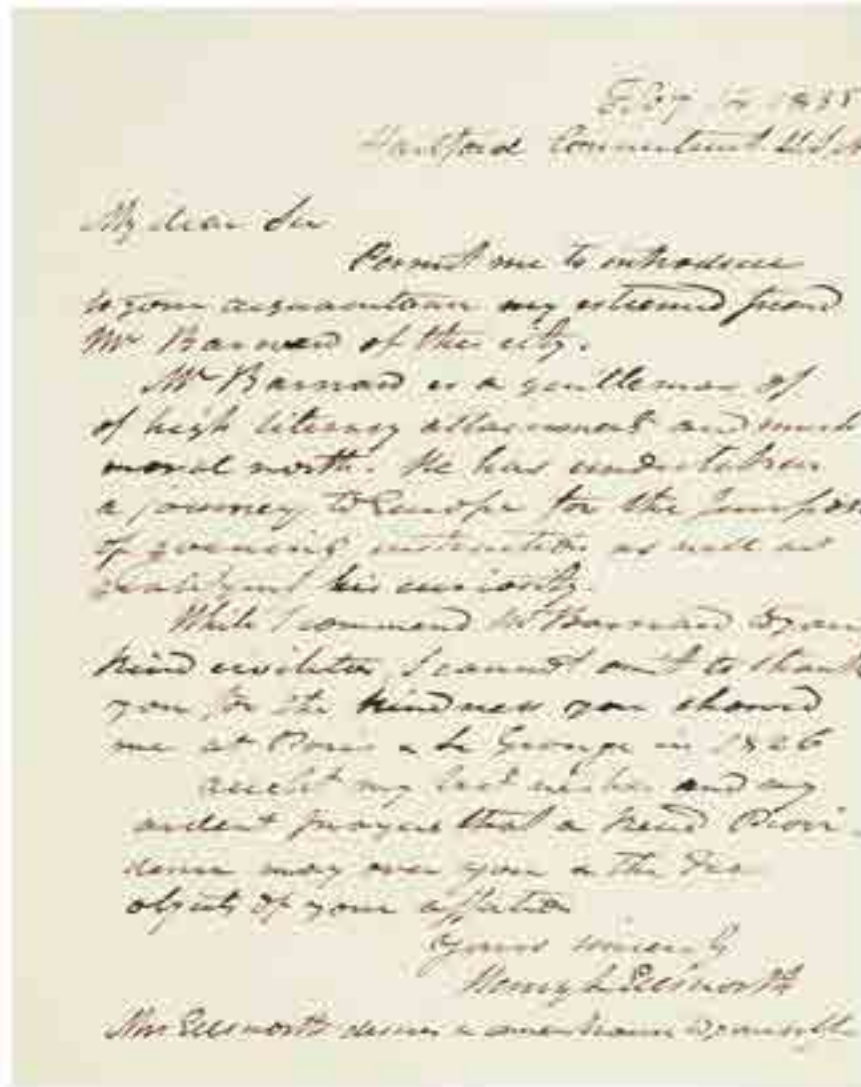 Feby 14 1835
Hartford Connecticut U.S.A
My dear Sir
Permit me to introduce
to your acquaintance my esteemed friend
Mr Barnard of this city.
Mr Barnard is a gentleman of
of high literary attainment and much
moral worth. He has undertaken
a journey to Europe for the purpose
of gaining instruction as well as
gratifying his curiosity.
While I commend Mr Barnard to your
kind civilities, I cannot omit to thank
you for the kindness you showed
me at Paris & La Grange in 1826
accept my best wishes and my
ardent prayer that a kind Provi
dence may over you & the dear
objects of your affection
Yours sincerely
Henry L Ellsworth
Mrs Ellsworth desires a